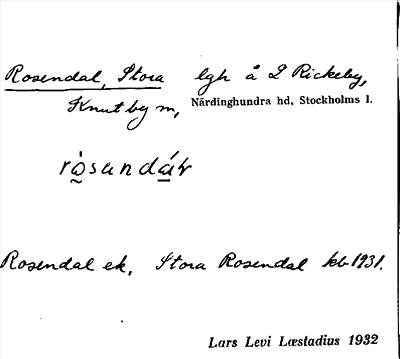 Rosendal, Stora lgh å 2 Rickeby,
Knutby sn, Närdinghundra hd, Stockholms l.
rò̰sandáḷ
Rosendal ek, Stora Rosendal kb 1931.
Lars Levi Læstadius 1932